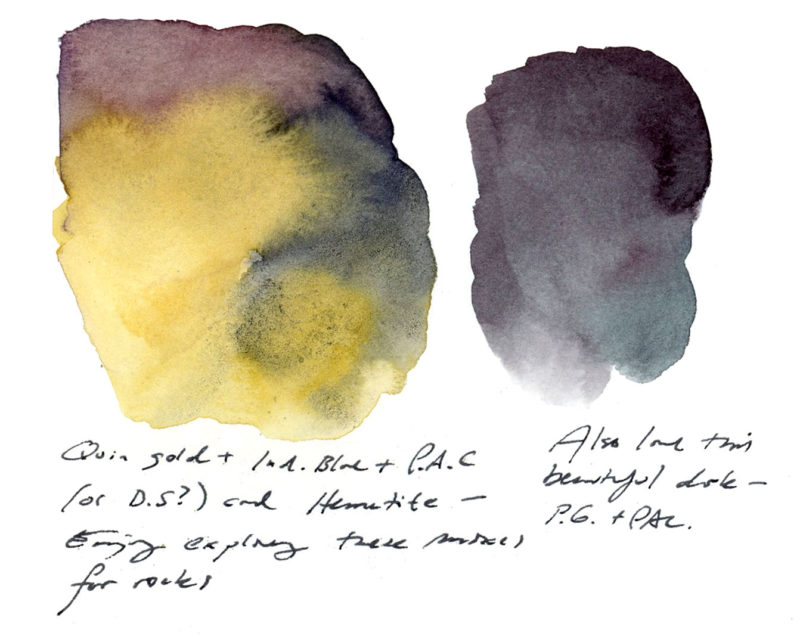 Quin gold + Ind. Blue + P.A.C
(or D.S?) and Hematite —
Enjoy exploring these mixes
for rocks
Also love this
beautiful dark —
P.G. + PAC.